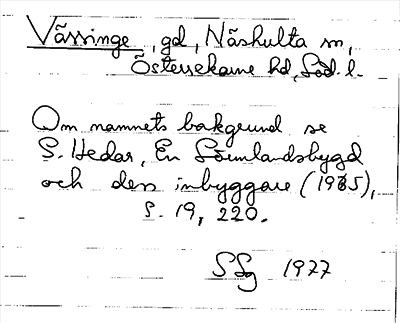 Vässinge, gd, Näshulta sn,
Österrekarne hd, Söd. l.
Om namnets bakgrund se
S. Hedar, En Sörmlandsbygd
och dess inbyggare (1965),
s. 19, 220.
SSg 1977